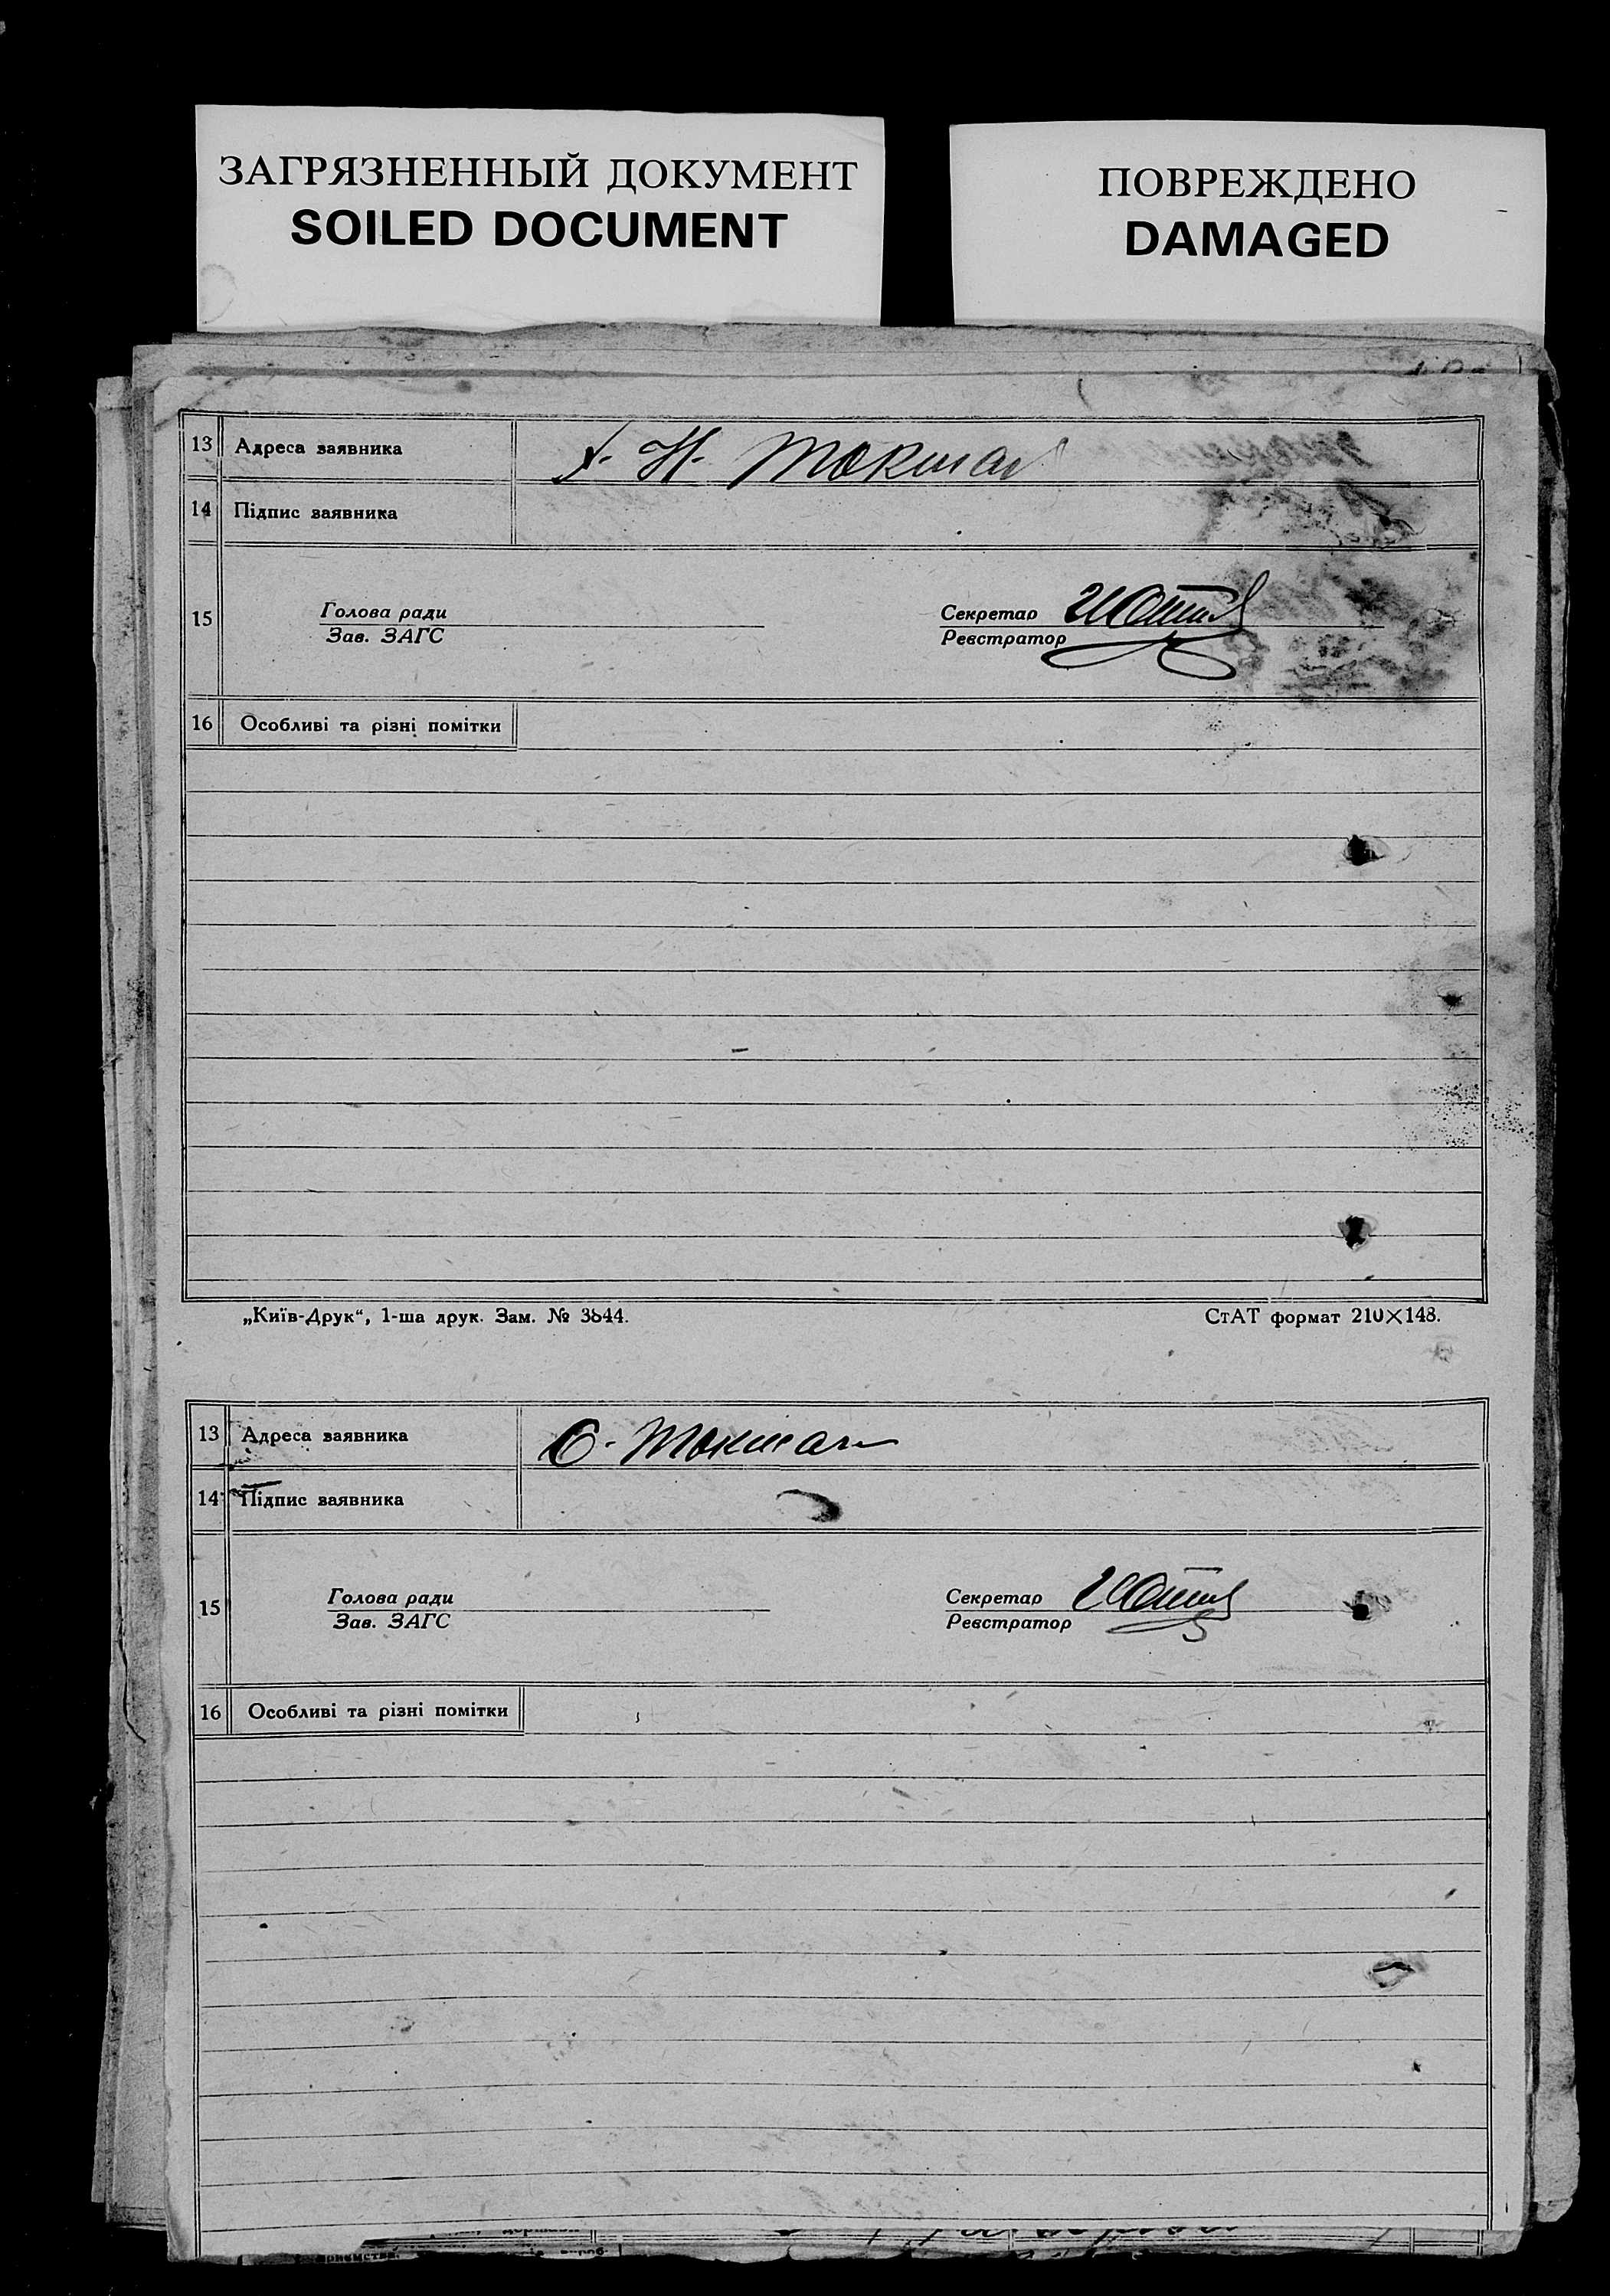 ЗАГРЯЗНЕННЫЙ ДОКУМЕНТ
SOILED DOCUMENT
ПОВРЕЖДЕНО
DAMAGED
13 Адреса заявника Н. Токмак
14 Підпис заявника
15 Голова ради Секретар
Зав. ЗАГС Реєстратор
16 Особливі та різні помітки
„Київ-Друк“, 1-ша друк. Зам. № 3844. СтАТ формат 210×148.
13 Адреса заявника Токмак
14 Підпис заявника
15 Голова ради Секретар
Зав. ЗАГС Реєстратор
16 Особливі та різні помітки